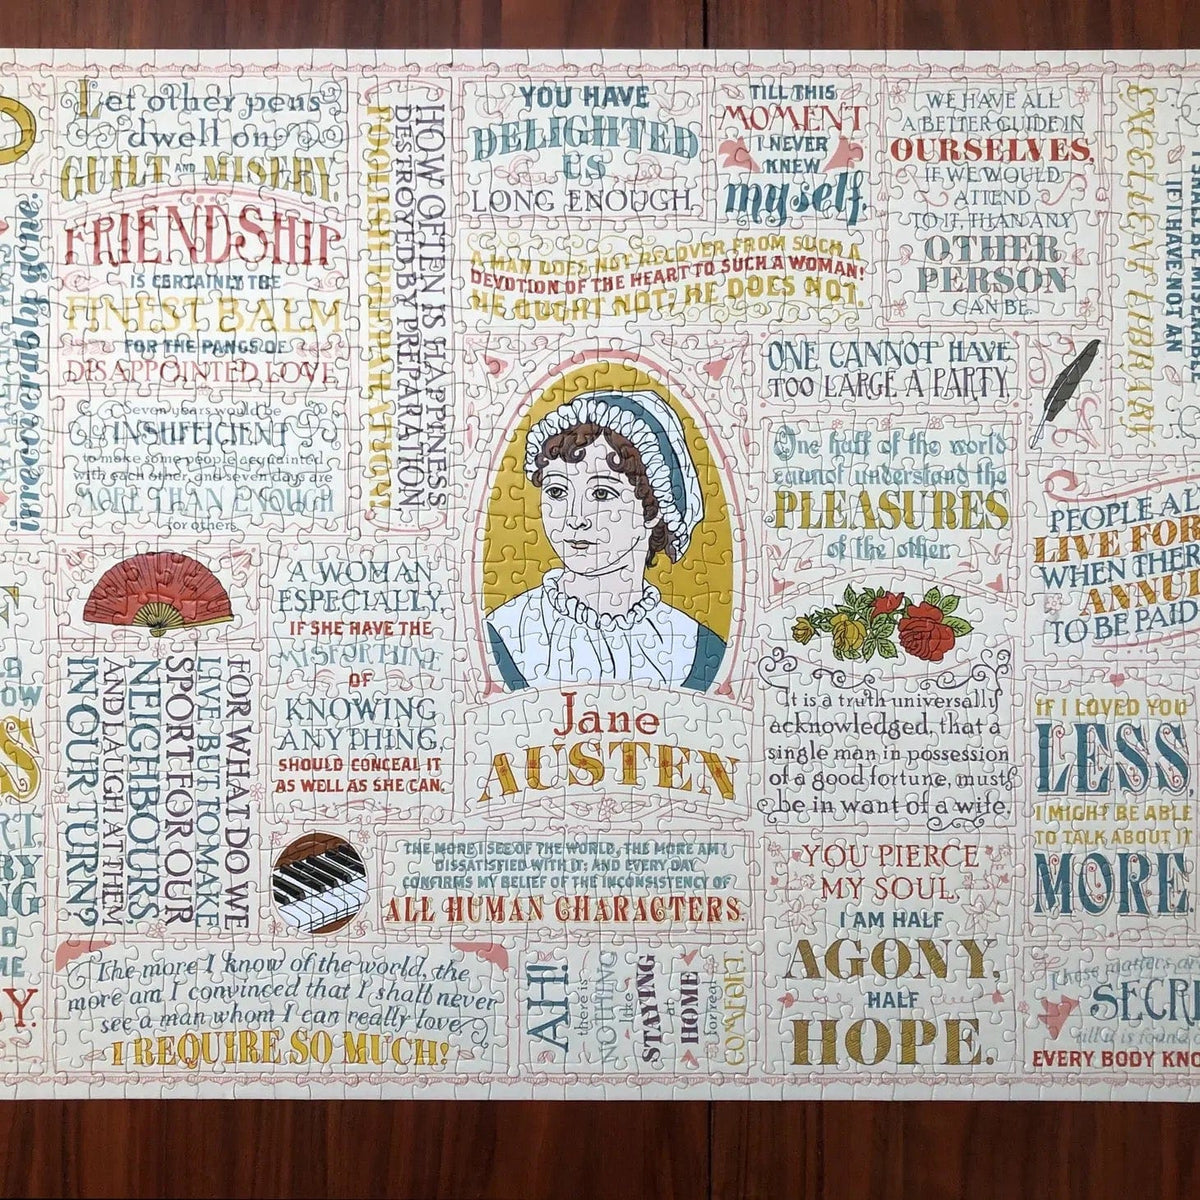 irrecoverably gone.
Let other pens
dwell on
GUILT AND MISERY
FRIENDSHIP
IS CERTAINLY THE
FINEST BALM
FOR THE PANGS OF
DISAPPOINTED LOVE
Seven years would be
INSUFFICIENT
to make some people acquainted
with each other, and seven days are
MORE THAN ENOUGH
for others.
HOW OFTEN IS HAPPINESS
DESTROYED BY PREPARATION,
FOOLISH PREPARATION!
YOU HAVE
DELIGHTED
US
LONG ENOUGH.
TILL THIS
MOMENT
I NEVER
KNEW
myself.
A MAN DOES NOT RECOVER FROM SUCH A
DEVOTION OF THE HEART TO SUCH A WOMAN!
HE OUGHT NOT; HE DOES NOT.
WE HAVE ALL
A BETTER GUIDE IN
OURSELVES,
IF WE WOULD
ATTEND
TO IT, THAN ANY
OTHER
PERSON
CAN BE.
IF I HAVE NOT AN
EXCELLENT LIBRARY
ONE CANNOT HAVE
TOO LARGE A PARTY.
One half of the world
cannot understand the
PLEASURES
of the other.
PEOPLE AL
LIVE FOR
WHEN THER
ANNU
TO BE PAID
A WOMAN
ESPECIALLY,
IF SHE HAVE THE
MISFORTUNE
OF
KNOWING
ANYTHING,
SHOULD CONCEAL IT
AS WELL AS SHE CAN.
Jane
AUSTEN
It is a truth universally
acknowledged, that a
single man in possession
of a good fortune, must
be in want of a wife.
FOR WHAT DO WE
LIVE BUT TO MAKE
SPORT FOR OUR
NEIGHBOURS,
AND LAUGH AT THEM
IN OUR TURN?
IF I LOVED YOU
LESS,
I MIGHT BE ABLE
TO TALK ABOUT IT
MORE.
THE MORE I SEE OF THE WORLD, THE MORE AM I
DISSATISFIED WITH IT; AND EVERY DAY
CONFIRMS MY BELIEF OF THE INCONSISTENCY OF
ALL HUMAN CHARACTERS.
YOU PIERCE
MY SOUL.
I AM HALF
AGONY,
HALF
HOPE.
The more I know of the world, the
more am I convinced that I shall never
see a man whom I can really love.
I REQUIRE SO MUCH!
AH!
there is
NOTHING
like
STAYING
at
HOME
for real
COMFORT.
These matters are
SECR
till it is found
EVERY BODY KNO